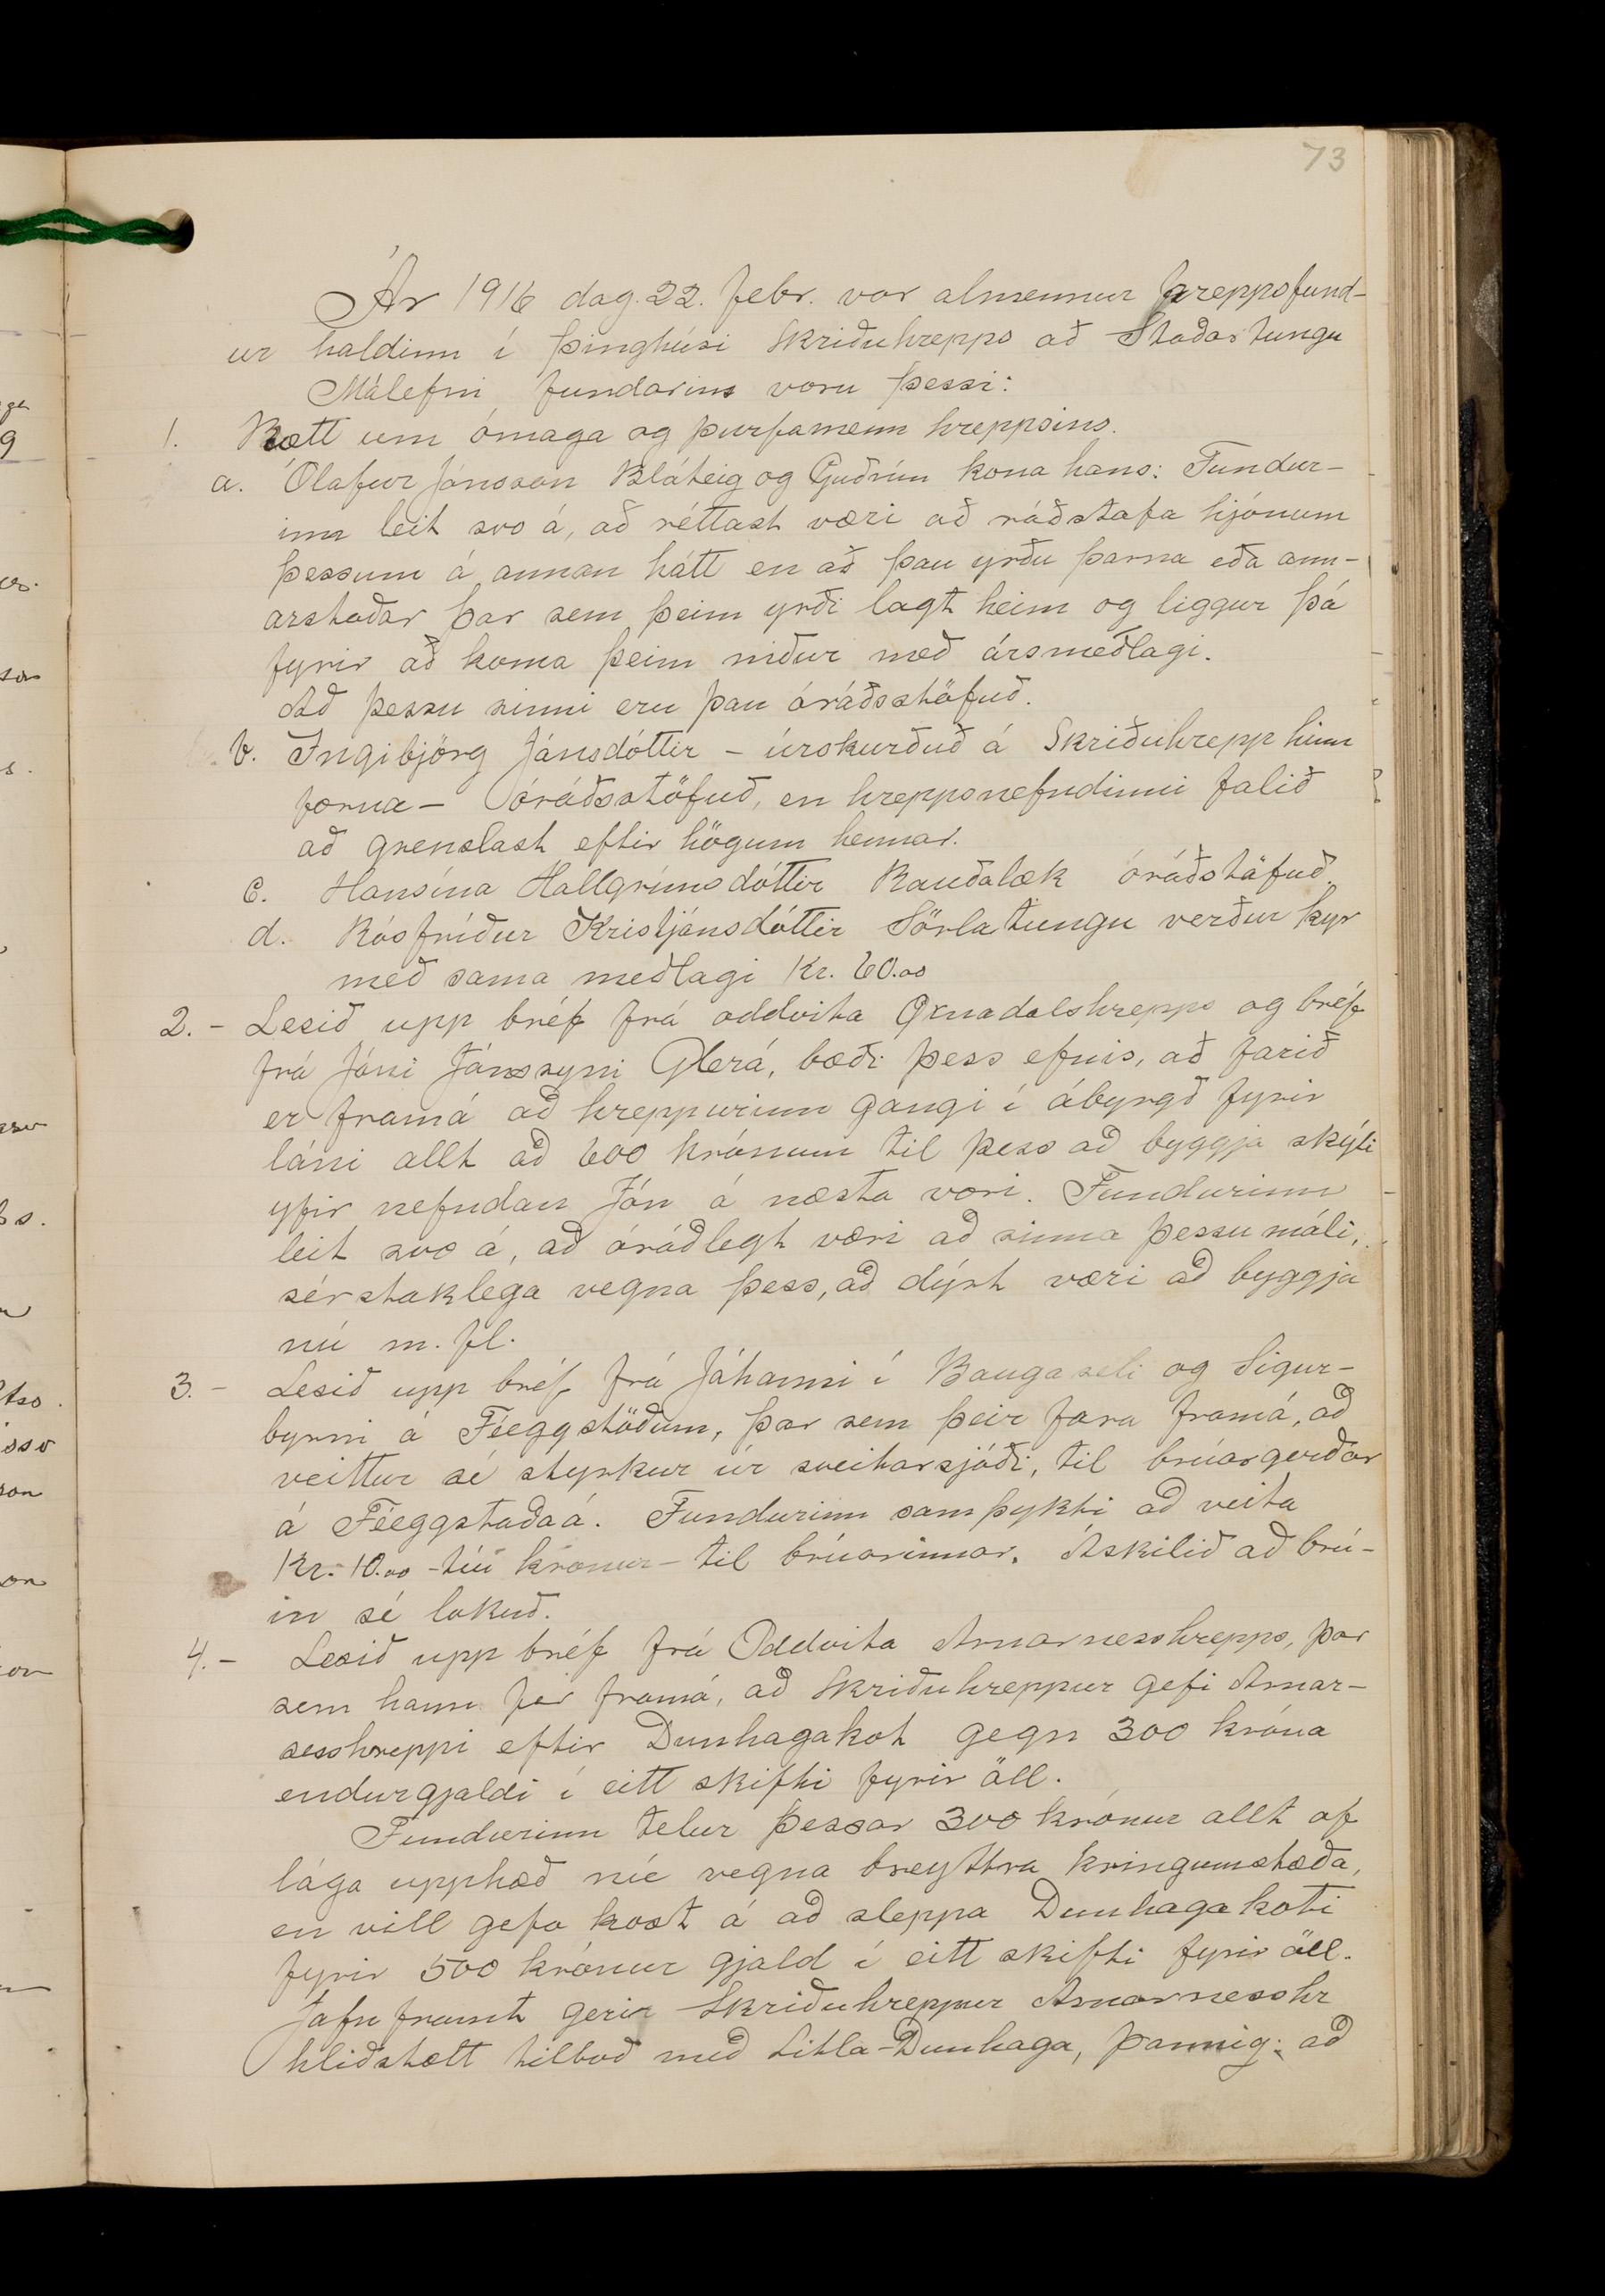 73
Ár 1916 dag. 22. febr. var almennur hreppsfund-
ur haldinn í þinghúsi Skriðuhrepps að Staðartungu
Málefni fundarins voru þessi:
1. Rætt um ómaga og þurfamenn hreppsins.
a. Ólafur Jónsson Bláteig og Guðrún kona hans: Fundur-
inn leit svo á, að réttast væri að ráðstafa hjónum
þessum á annan hátt en að þau yrðu þarna eða ann-
arstaðar þar sem þeim yrði lagt heim og liggur þá
fyrir að koma þeim niður með ársmeðlagi.
Að þessu sinni eru þau óráðsstöfuð.
b. Ingibjörg Jónsdóttir - úrskurðuð á Skriðuhrepp hinn
forna - óráðsstöfuð, en hreppsnefndinni falið
að grenslast eftir högum hennar.
c. Hansína Hallgrímsdóttir Rauðalæk óráðstöfuð.
d. Rósfríður Kristjánsdóttir Sörlatungu verður kyr
með sama meðlagi Kr. 60.00
2. - Lesið upp bréf frá oddvita Öxnadalshrepps og bréf
frá Jóni Jónssyni Glerá, bæði þess efnis, að farið
er framá að hreppurinn gangi í ábyrgð fyrir
láni allt að 600 krónum til þess að byggja skýli
yfir nefndan Jón á næsta vori. Fundurinn
leit svo á, að óráðlegt væri að sinna þessu máli,
sérstaklega vegna þess, að dýrt væri að byggja
nú m. fl.
3. - Lesið upp bréf frá Jóhanni í Baugaseli og Sigur-
byrni á Féeggstöðum, þar sem þeir fara framá, að
veittur sé styrkur úr sveitarsjóði, til brúargerðar
á Féeggstaðaá. Fundurinn samþykti að veita
Kr. 10.00 - tíu krónur - til brúarinnar. Áskilið að brú-
in sé lokuð.
4. - Lesið upp bréf frá Oddvita Arnarnesshrepps, þar
sem hann fer framá, að Skriðuhreppur gefi Arnar-
nesshreppi eftir Dunhagakot gegn 300 króna
endurgjaldi í eitt skifti fyrir öll.
Fundurinn telur þessar 300 krónur allt of
lága upphæð nú vegna breyttra kringumstæða,
en vill gefa kost á að sleppa Dunhagakoti
fyrir 500 krónur gjald í eitt skifti fyrir öll.
Jafnframt gerir Skriðuhreppur Arnarnesshr
hliðstætt tilboð með Litla-Dunhaga, þannig: að